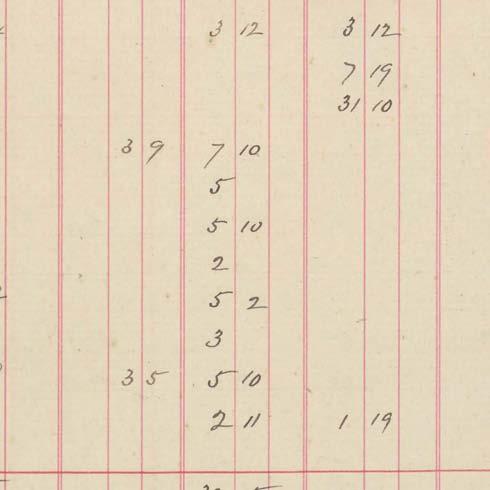 3 12 3 12
7 19
31 10
3 9 7 10
5
5 10
2
5 2
3
3 5 5 10
2 11 1 19